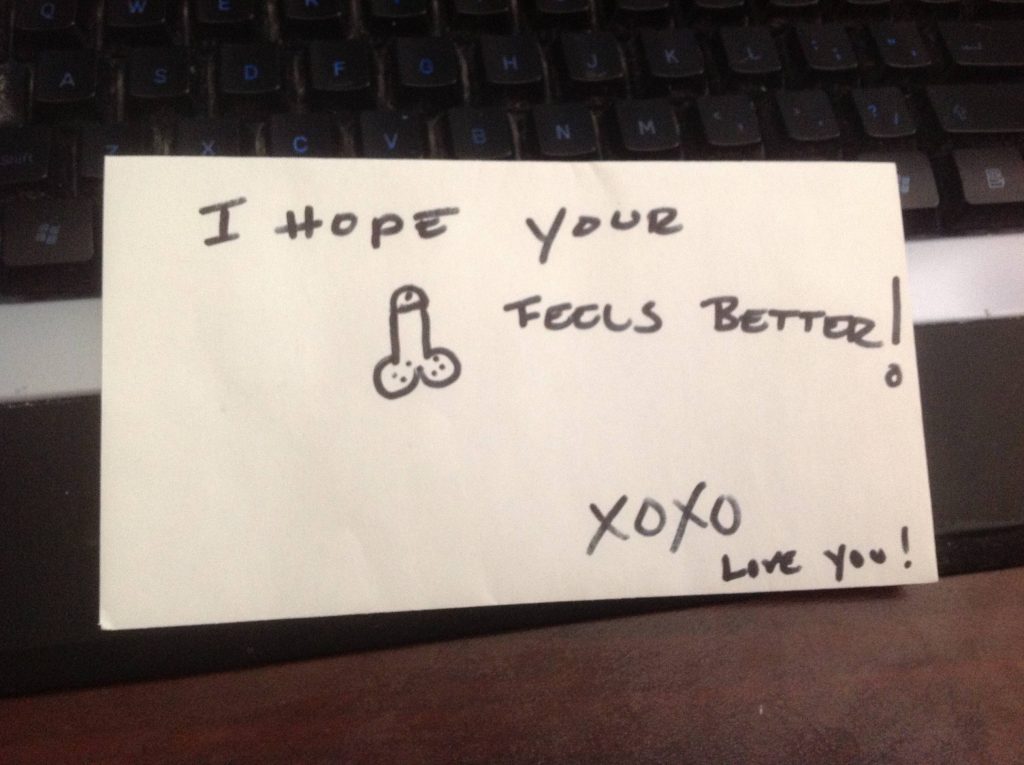 Q W E
A S D F G H J K L ; : " '
Shift Z X C V B N M < , > . ? /
I HOPE YOUR
FEELS BETTER!
XOXO
LOVE YOU!